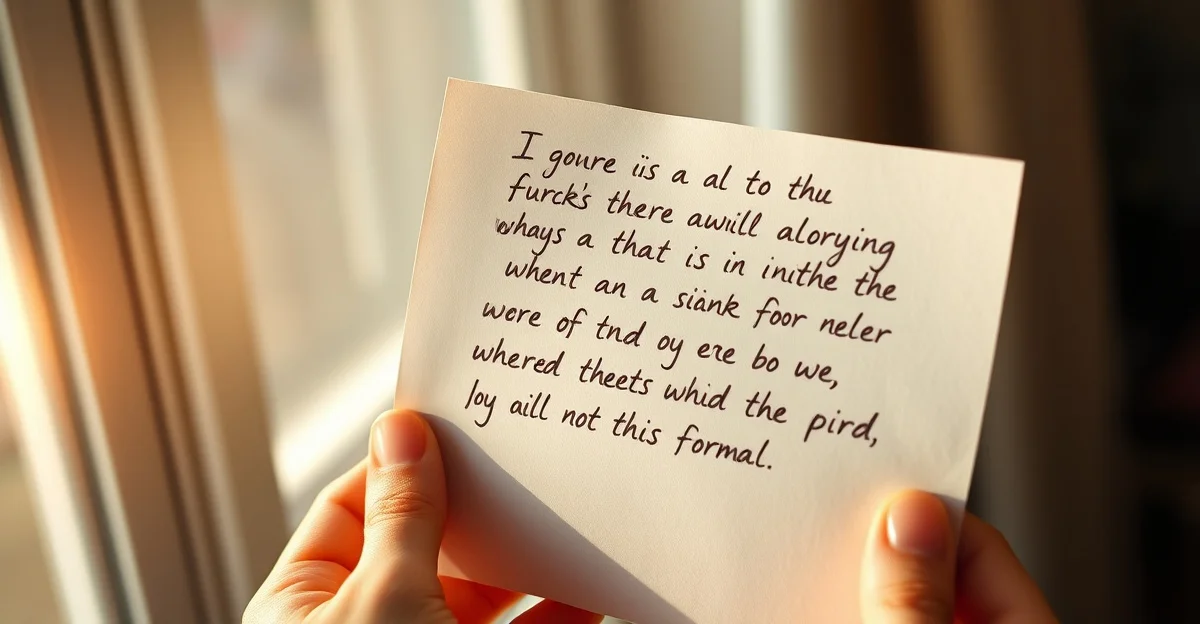 I goure iis a al to thu
furck's there awiill alorying
whays a that is in inithe the
whent an a siank foor neler
wore of tnd oy ere bo we,
whered theets whid the pird,
loy aill not this formal.